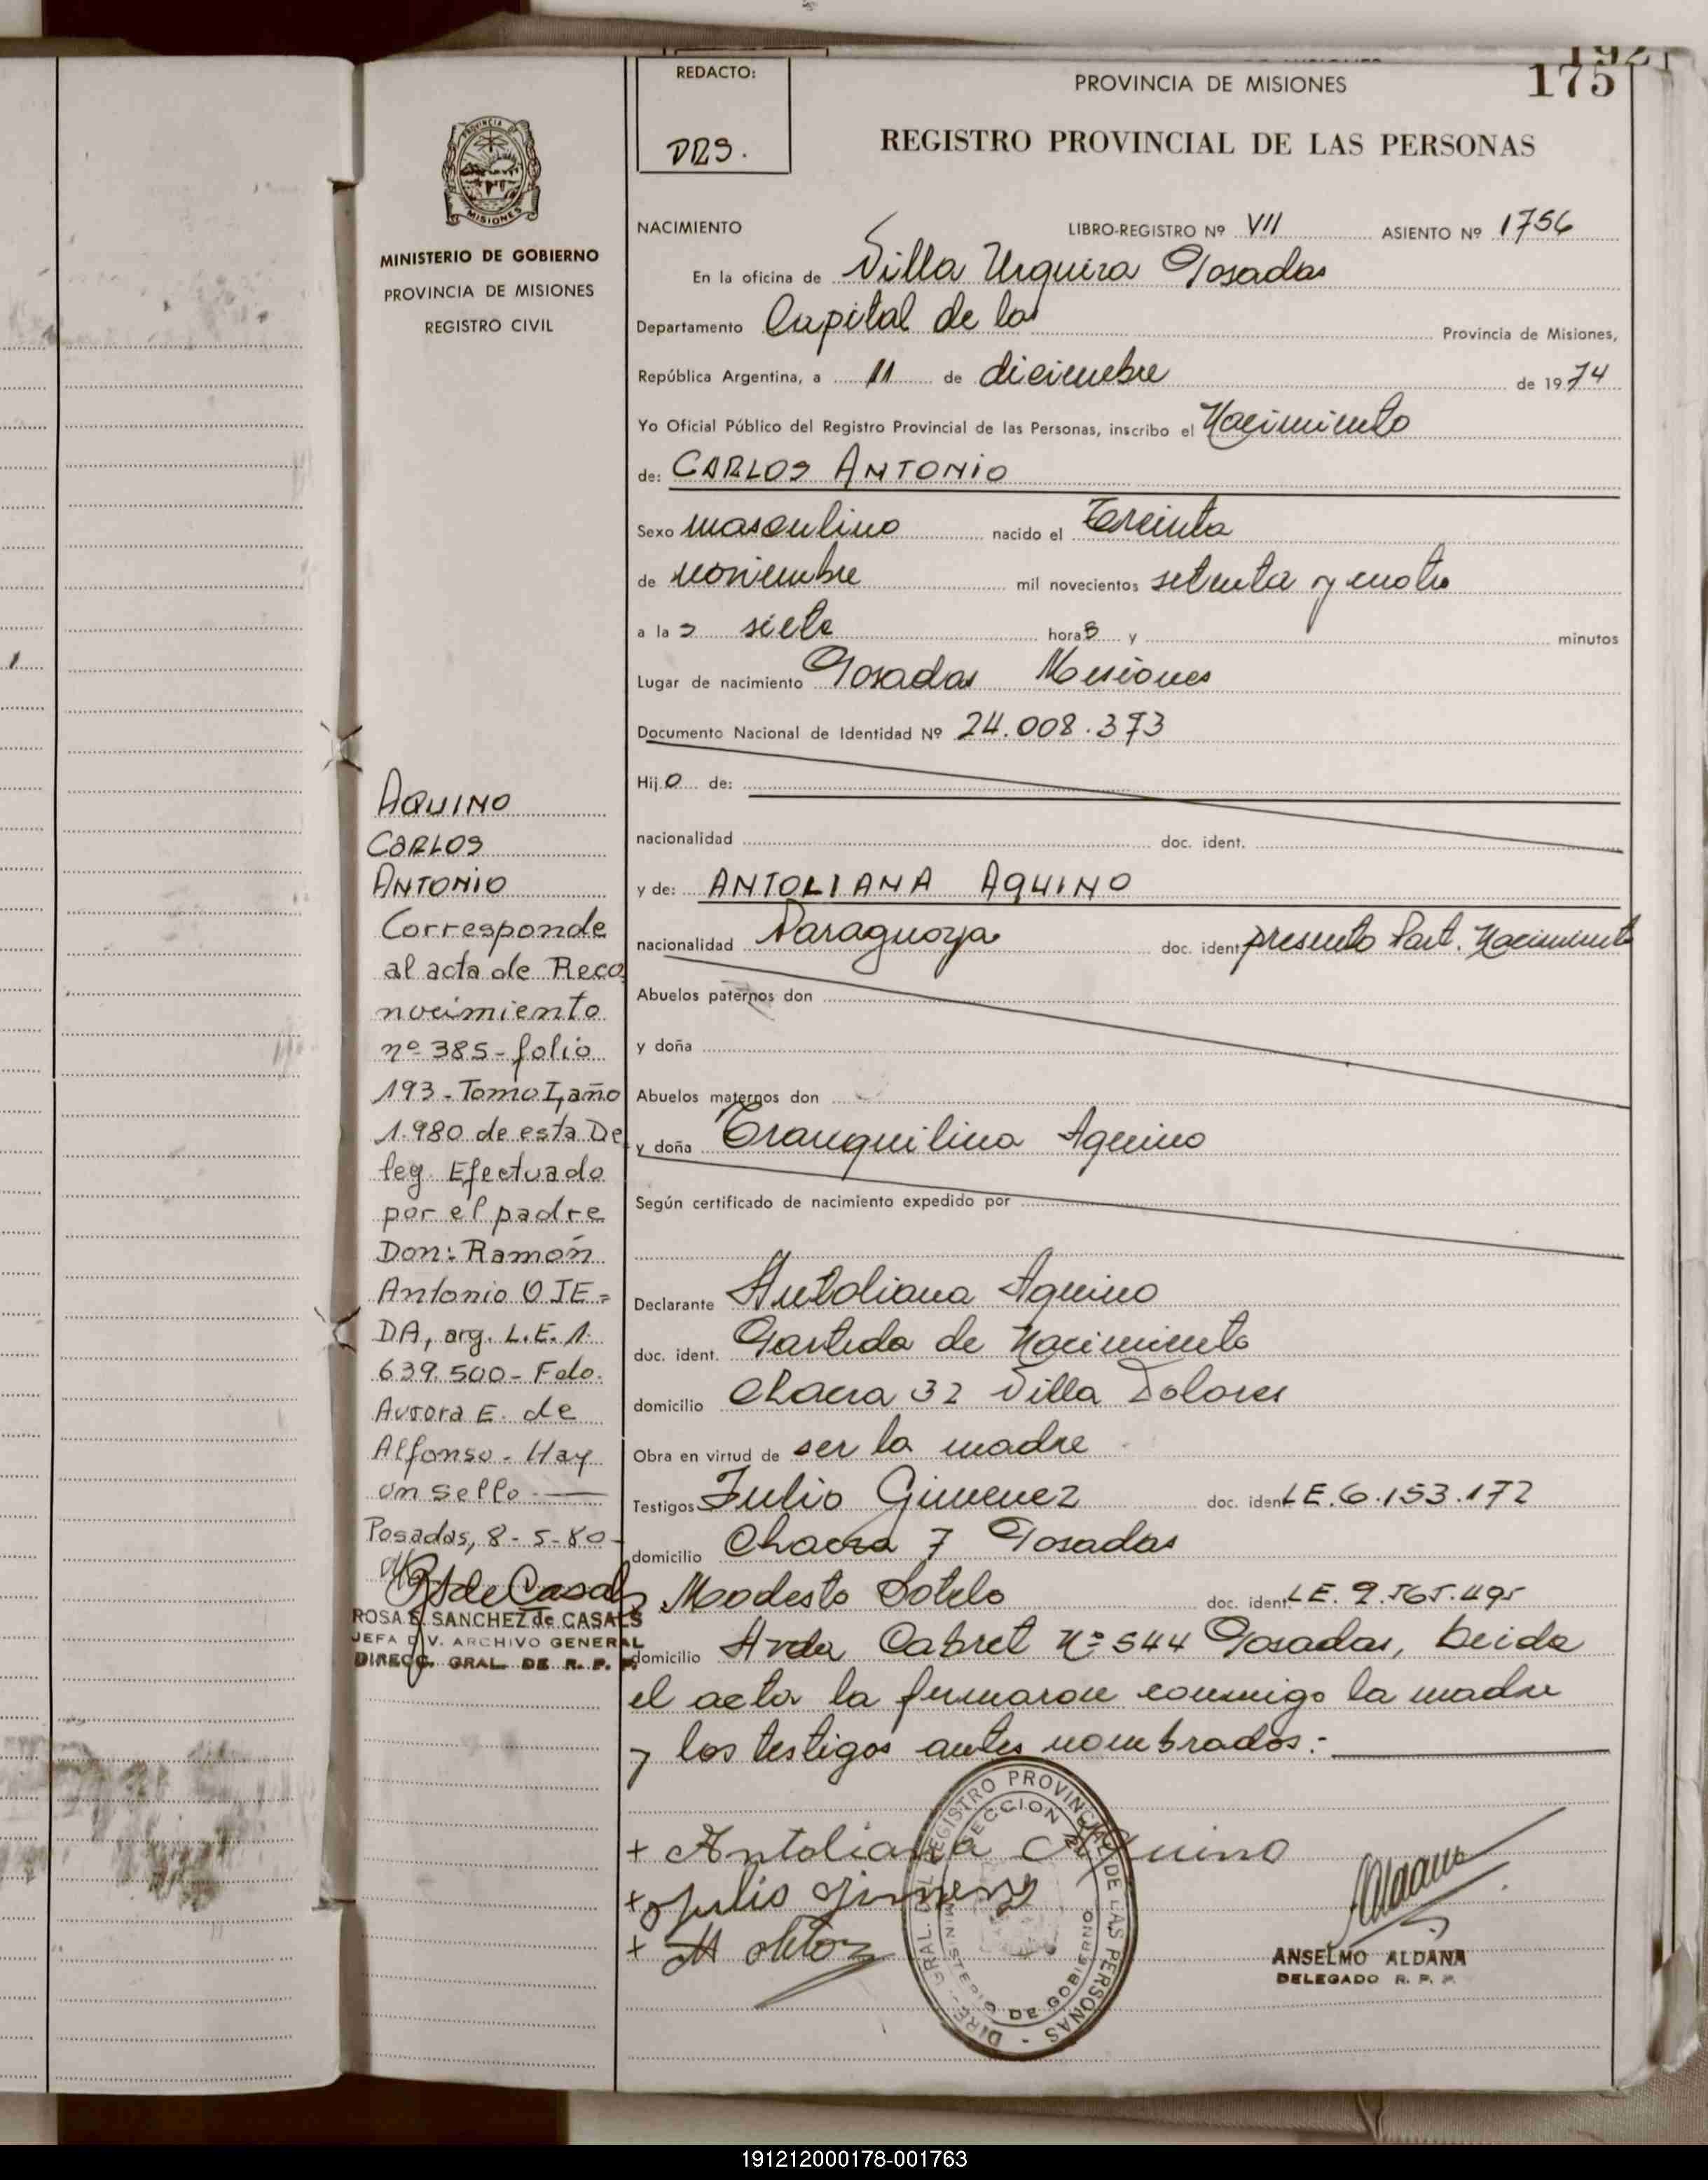 192
175
REDACTO:
DRS.
PROVINCIA DE MISIONES
REGISTRO PROVINCIAL DE LAS PERSONAS
PROVINCIA DE
MISIONES
MINISTERIO DE GOBIERNO
PROVINCIA DE MISIONES
REGISTRO CIVIL
NACIMIENTO LIBRO-REGISTRO Nº VII ASIENTO Nº 1756
En la oficina de Villa Urquiza Posadas
Departamento Capital de la Provincia de Misiones,
República Argentina, a 11 de diciembre de 1974
Yo Oficial Público del Registro Provincial de las Personas, inscribo el Nacimiento
de: CARLOS ANTONIO
Sexo masculino nacido el Treinta
de noviembre mil novecientos setenta y cuatro
a las siete horas y minutos
Lugar de nacimiento Posadas Misiones
Documento Nacional de Identidad Nº 24.008.373
Hijo de:
nacionalidad doc. ident.
y de: ANTOLIANA AQUINO
nacionalidad Paraguaya doc. ident. presento Part. Nacimiento
Abuelos paternos don
y doña
Abuelos maternos don
y doña Tranquilina Aquino
Según certificado de nacimiento expedido por
Declarante Antoliana Aquino
doc. ident. Partida de Nacimiento
domicilio Chacra 32 Villa Dolores
Obra en virtud de ser la madre
Testigos Julio Gimenez doc. ident LE.6.153.172
domicilio Chacra 7 Posadas
Modesto Sotelo doc. ident LE. 9.565.495
domicilio Avda Cabret Nº 544 Posadas, Leida
el acta la firmaron conmigo la madre
y los testigos antes nombrados:-
AQUINO
CARLOS
ANTONIO
Corresponde
al acta de Reco
nocimiento
nº 385-folio
193-Tomo I, año
1.980 de esta De
leg. Efectuado
por el padre
Don: Ramón
Antonio OJE=
DA, arg. L.E. 1.
639.500-Fdo.
Aurora E. de
Alfonso-Hay
un sello
Posadas, 8-5-80-
ROSA E. SANCHEZ de CASALS
JEFA DIV. ARCHIVO GENERAL
DIRECC. GRAL. DE R. P. P.
+ Antoliana Aquino
+ Julio Gimenez
+
DIREC. GRAL. DEL REGISTRO PROVINCIAL DE LAS PERSONAS -
MINISTERIO DE GOBIERNO
Aldana
ANSELMO ALDANA
DELEGADO R. P. P.
191212000178-001763